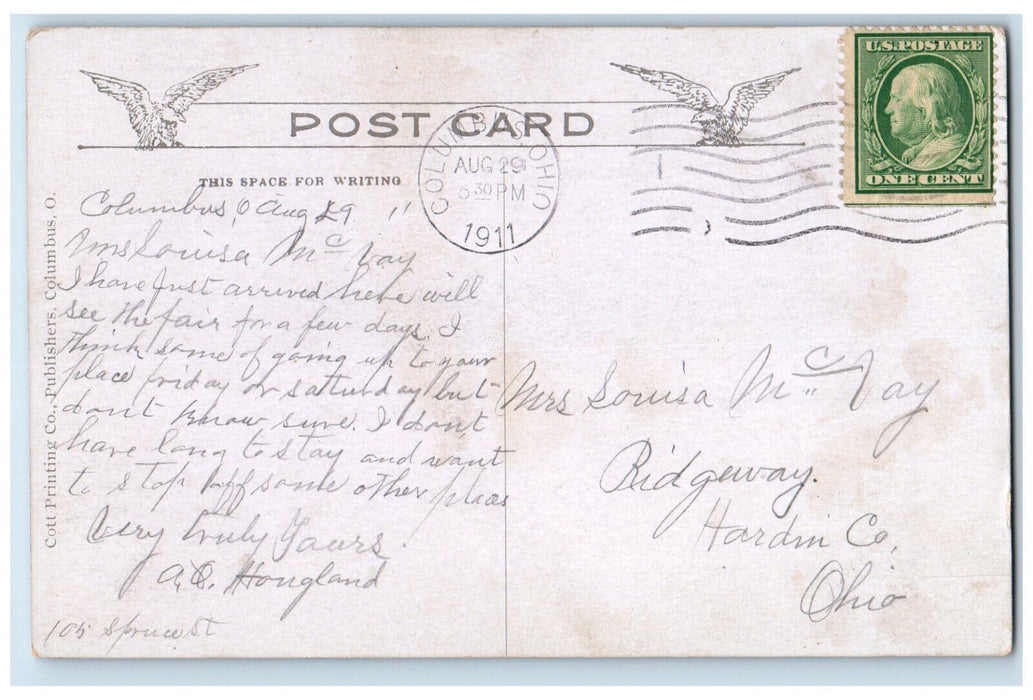 POST CARD
THIS SPACE FOR WRITING
U.S. POSTAGE
ONE CENT
COLUMBUS, OHIO
AUG 29
5 30 PM
1911
Cott Printing Co., Publishers, Columbus, O.
Columbus, O Aug 29 11
Mrs Louisa Mc Vay
I have just arrived here will
see the fair for a few days. I
think some of going up to your
place friday or saturday but
dont know sure. I dont
have long to stay and want
to stop off some other places
Very truly Yours.
A. O. Hougland
105 Spruce St
Mrs Louisa Mc Vay
Ridgeway.
Hardin Co,
Ohio